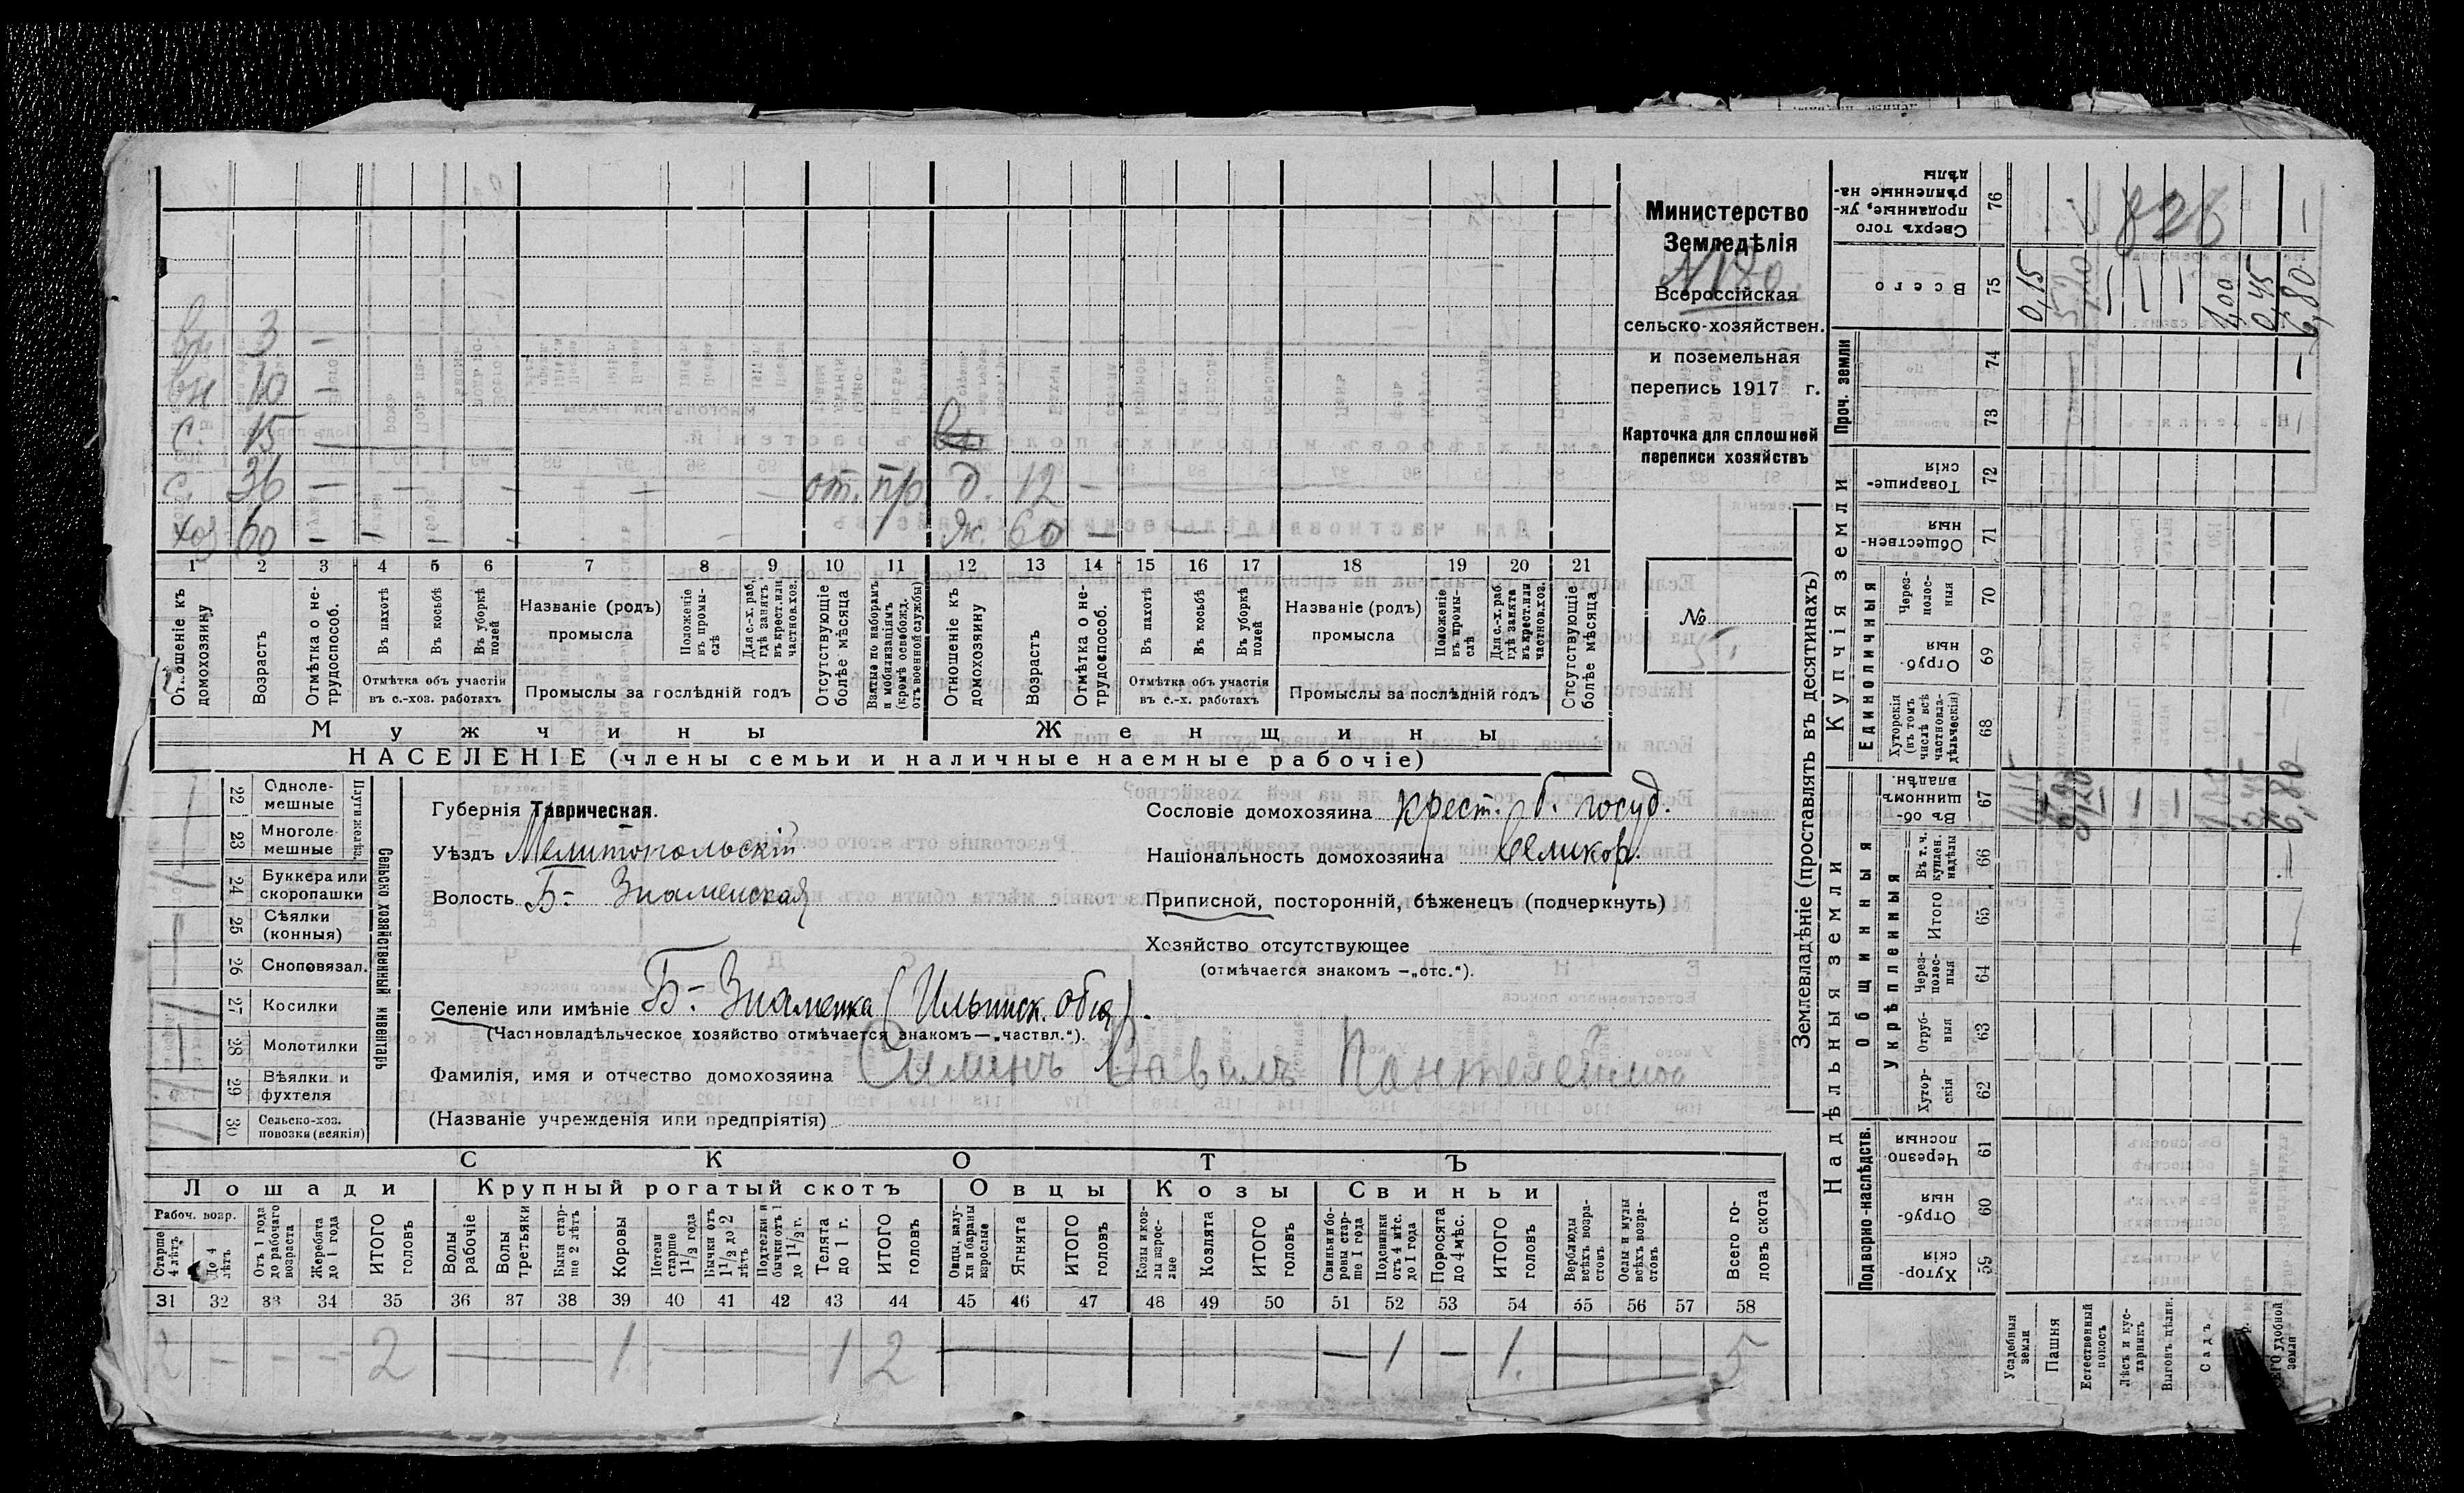 вн 3 —
вн 10 —
с. 15 — вн.
с. 36 — — — — — — от. пр. д. 12 —
хоз 60 — — — — — ж. 60 — — —
1 2 3 4 5 6 7 8 9 10 11 12 13 14 15 16 17 18 19 20 21
Отношеніе къ домохозяину
Возрастъ
Отмѣтка о не-
трудоспособ.
Въ пахотѣ
Въ косьбѣ
Въ уборкѣ полей
Отмѣтка объ участіи
въ с.-хоз. работахъ
Названіе (родъ)
промысла
Положеніе въ промы-
слѣ
Для с.-х. раб. гдѣ занятъ въ крест. или частнов. хоз.
Промыслы за послѣдній годъ
Отсутствующіе болѣе мѣсяца
Взятые по наборамъ и мобилизаціямъ (кромѣ освобожд. отъ военной службы)
Отношеніе къ домохозяину
Возрастъ
Отмѣтка о не-
трудоспособ.
Въ пахотѣ
Въ косьбѣ
Въ уборкѣ полей
Отмѣтка объ участіи
въ с.-х. работахъ
Названіе (родъ)
промысла
Положеніе въ промы-
слѣ
Для с.-х. раб. гдѣ занята въ крест. или частнов. хоз.
Промыслы за послѣдній годъ
Отсутствующіе болѣе мѣсяца
Мужчины Женщины
НАСЕЛЕНІЕ (члены семьи и наличные наемные рабочіе)
Министерство
Земледѣлія
Всероссійская
сельско-хозяйствен.
и поземельная
перепись 1917 г.
Карточка для сплошной
переписи хозяйствъ
№
Плуги желѣз.
22 Одноле-
мешные
23 Многоле-
мешные
24 Буккера или
скоропашки
25 Сѣялки
(конныя)
26 Сноповязал.
27 Косилки
28 Молотилки
29 Вѣялки и
фухтеля
30 Сельско-хоз.
повозки (всякія)
Сельско хозяйственный инвентарь
Губернія Таврическая.
Уѣздъ Мелитопольскій
Волость Б- Знаменская
Сословіе домохозяина крест. б. госуд.
Національность домохозяина великор.
Приписной, посторонній, бѣженецъ (подчеркнуть)
Хозяйство отсутствующее
(отмѣчается знакомъ —„отс.“).
Селеніе или имѣніе Б- Знаменка (Ильинск. общ.)
(Частновладѣльческое хозяйство отмѣчается знакомъ—„частвл.“).
Фамилія, имя и отчество домохозяина Силинъ Павелъ Пантелеймо
(Названіе учрежденія или предпріятія)
СКОТЪ
Лошади Крупный рогатый скотъ Овцы Козы Свиньи
Рабоч. возр.
Старше 4 лѣтъ
До 4 лѣтъ
Отъ 1 года до рабочаго возраста
Жеребята до 1 года
ИТОГО головъ
Волы рабочіе
Волы третьяки
Быки стар-
ше 2 лѣтъ
Коровы
Нетели старше 1½ года
Бычки отъ 1½ до 2 лѣтъ
Подтелки и бычки отъ 1 до 1½ г.
Телята до 1 г.
ИТОГО головъ
Овцы, валу-
хи и бараны взрослые
Ягнята
ИТОГО головъ
Козы и коз-
лы взрос-
лые
Козлята
ИТОГО головъ
Свиньи и бо-
ровы стар-
ше 1 года
Подсвинки отъ 4 мѣс. до 1 года
Поросята до 4 мѣс.
ИТОГО головъ
Верблюды всѣхъ возра-
стовъ
Ослы и мулы всѣхъ возра-
стовъ
Всего го-
ловъ скота
31 32 33 34 35 36 37 38 39 40 41 42 43 44 45 46 47 48 49 50 51 52 53 54 55 56 57 58
2 — — — 2 — 1 — 1 2 — — — 1 — 1. — 5
Землевладѣніе (проставлять въ десятинахъ)
Надѣльныя земли
Купчія земли
Проч. земли
Подворно-наслѣдств.
Общинныя
Укрѣпленныя
Единоличныя
Сверхъ того проданные, ук-
рѣпленные на-
дѣлы 76
Всего 75
74
73
Товарище-
скія 72
Обществен-
ныя 71
Через-
полос-
ныя 70
Отруб-
ныя 69
Хуторскія (въ томъ числѣ всѣ частновла-
дѣльческія) 68
Въ об-
щинномъ владѣн. 67
Въ т. ч. куплен. надѣлы 66
Итого 65
Через-
полос-
ныя 64
Отруб-
ныя 63
Хутор-
скія 62
Черезпо
лосныя 61
Отруб-
ныя 60
Хутор-
скія 59
826
0,15 5,20 — — — 1,00 0,45 6,80
5,20 — — — 6,80
Усадебныя земли
Пашня
Естественный покосъ
Лѣсъ и кус-
тарникъ
Выгонъ цѣлин.
Садъ
удобной земли